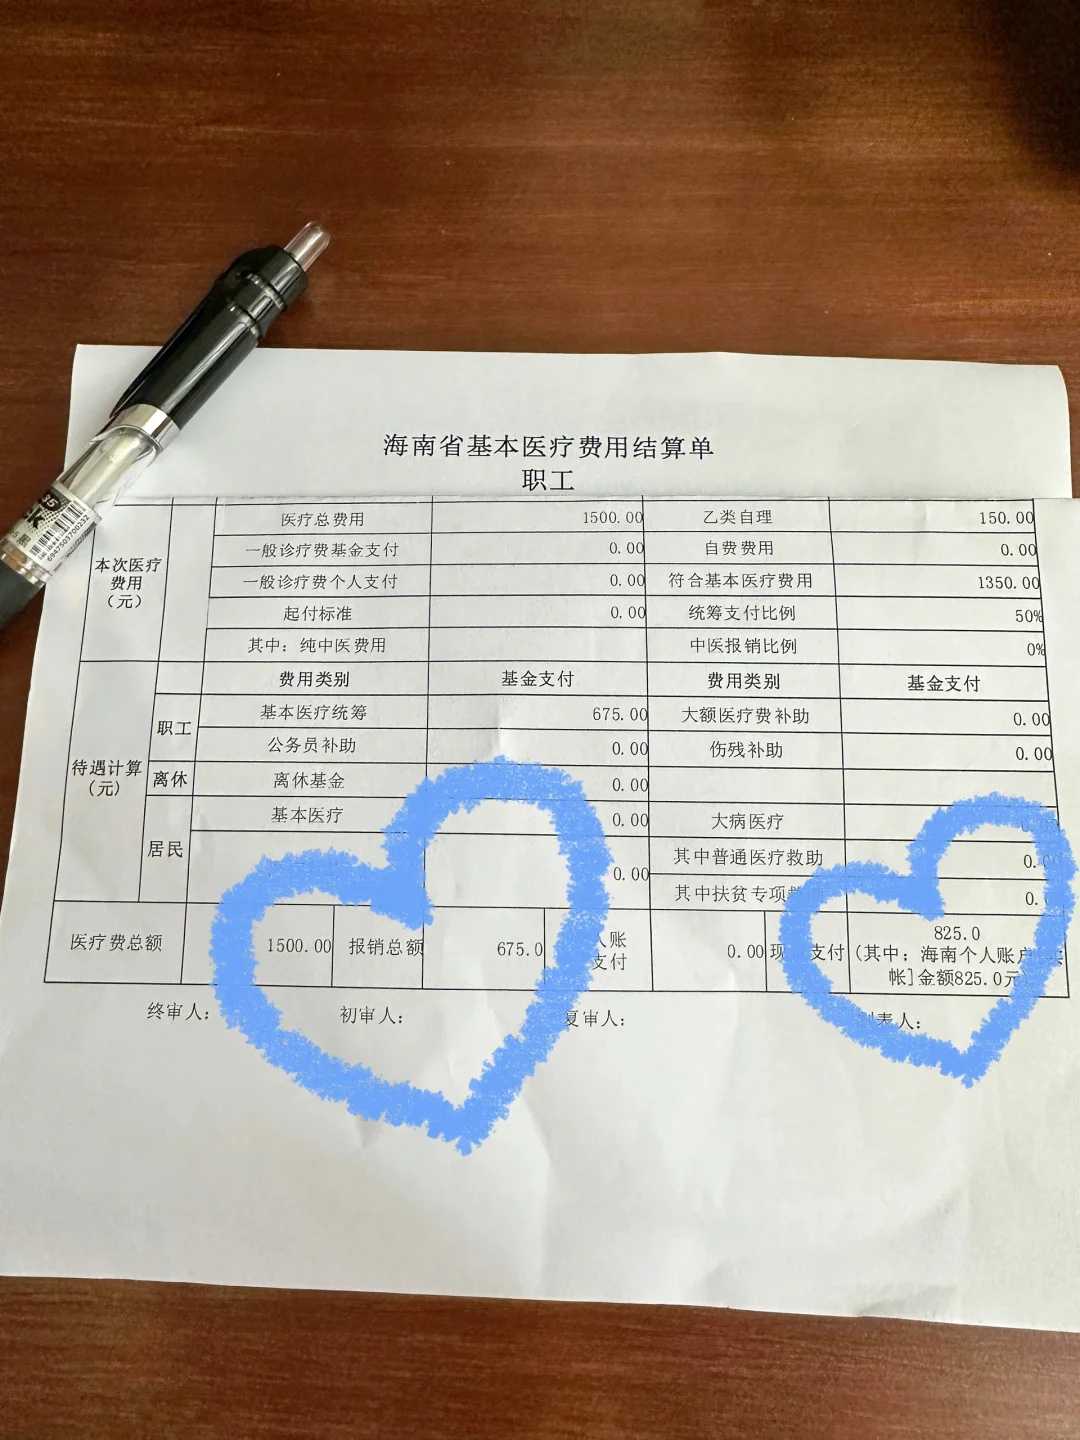 海南省基本医疗费用结算单
职工
本次医疗费用（元） 医疗总费用 1500.00 乙类自理 150.00
一般诊疗费基金支付 0.00 自费费用 0.00
一般诊疗费个人支付 0.00 符合基本医疗费用 1350.00
起付标准 0.00 统筹支付比例 50%
其中：纯中医费用 中医报销比例 0%
待遇计算（元） 费用类别 基金支付 费用类别 基金支付
职工 基本医疗统筹 675.00 大额医疗费补助 0.00
公务员补助 0.00 伤残补助 0.00
离休 离休基金 0.00
居民 基本医疗 0.00 大病医疗
0.00 其中普通医疗救助 0.0
其中扶贫专项救 0.
医疗费总额 1500.00 报销总额 675.0 人账支付 0.00 现 支付 825.0
（其中；海南个人账户
帐]金额825.0元）
终审人： 初审人： 复审人： 制表人：
6947503700232